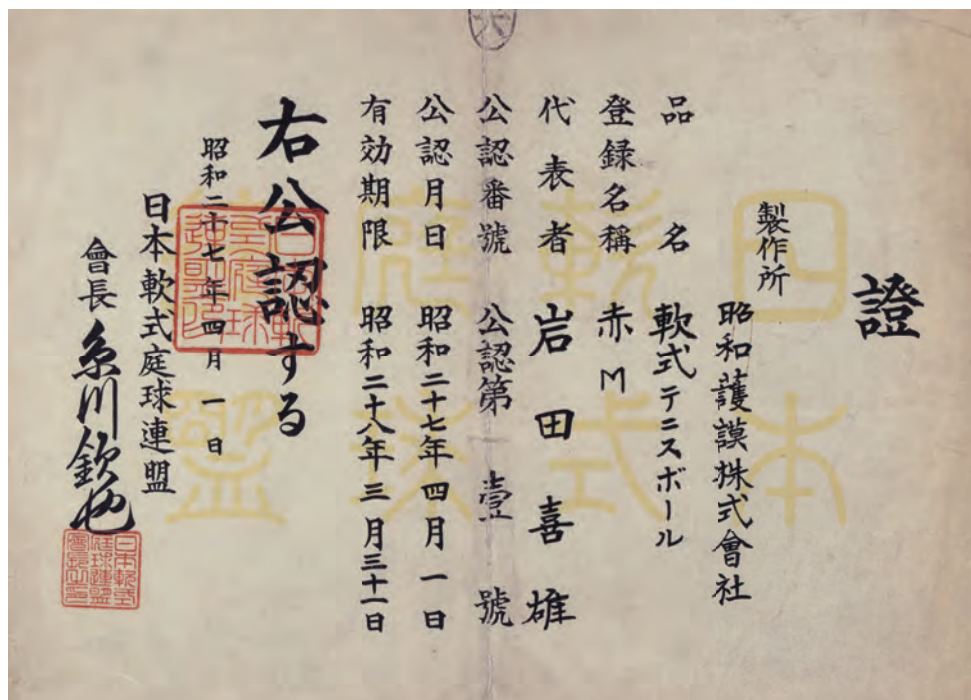 證
製作所
昭和護謨株式會社
品名 軟式テニスボール
登録名稱 赤M
代表者 岩田喜雄
公認番號 公認第壹號
公認月日 昭和二十七年四月一日
有効期限 昭和二十八年三月三十一日
右公認する
昭和二十七年四月一日
日本軟式庭球連盟
會長 糸川欽也
日本軟式庭球連盟
日本軟式庭球連盟會長之印